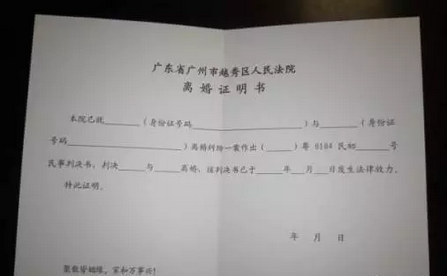 广东省广州市越秀区人民法院
离婚证明书
本院已就______(身份证号码______)与______(身份证
号码______)离婚纠纷一案作出(____)粤 0104 民初____号
民事判决书,判决____与____离婚,该判决书已于____年___月___日发生法律效力。
特此证明。
年 月 日
聚散皆姻缘,家和万事兴!